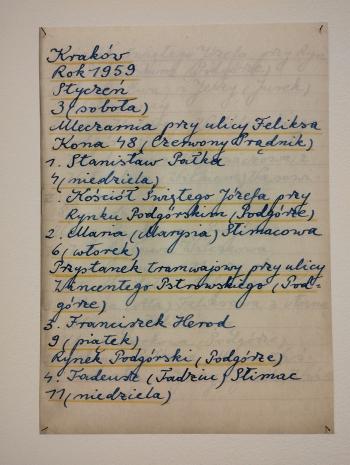 Kraków
Rok 1959
Styczeń
3 (sobota)
Mleczarnia przy ulicy Feliksa
Kona 48 (Czerwony Prądnik)
1. Stanisław Pałka
4 (niedziela)
Kościół Świętego Józefa przy
Rynku Podgórskim (Podgórze)
2. Maria (Marysia) Slimacowa
6 (wtorek)
Przystanek tramwajowy przy ulicy
Wincentego Pstrowskiego (Pod-
górze)
3. Franciszek Herod
9 (piątek)
Rynek Podgórski (Podgórze)
4. Tadeusz (Tadziu) Slimac
11 (niedziela)